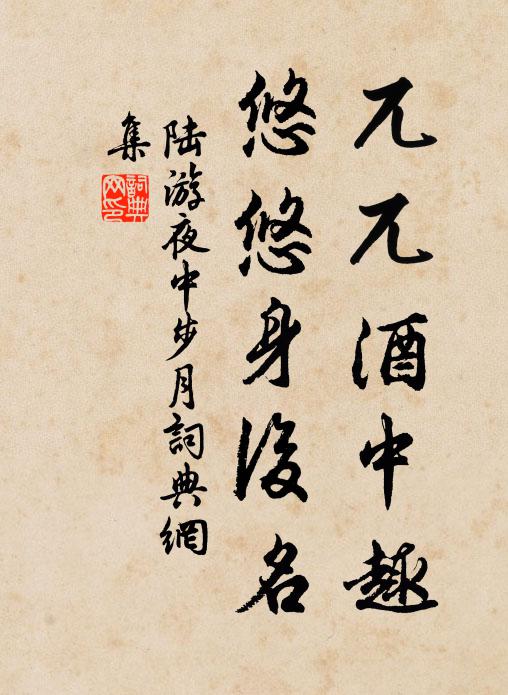 兀兀酒中趣
悠悠身後名
陆游夜中步月詞典網
集
詞典网印